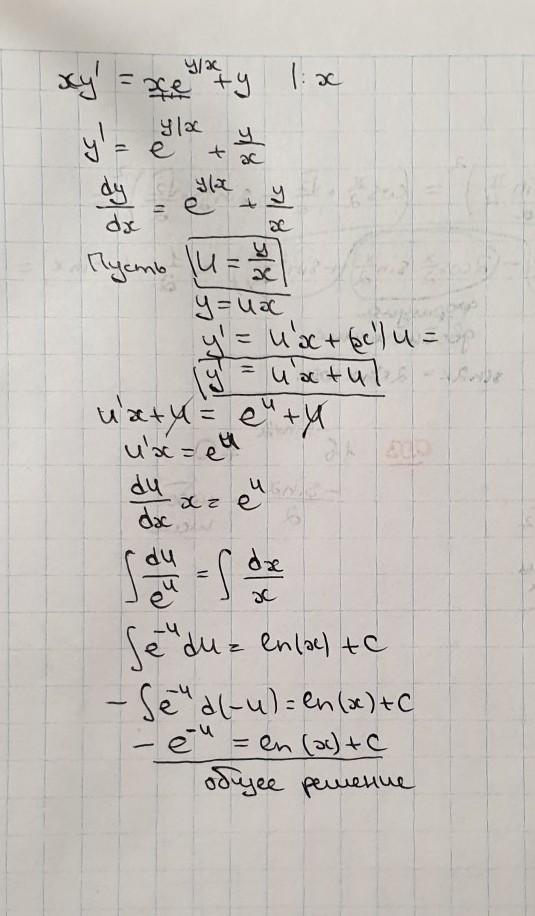 xy' = xe^{y/x} + y |: x
y' = e^{y/x} + y/x
dy/dx = e^{y/x} + y/x
Пусть u = y/x
y = ux
y' = u'x + (x')u =
y' = u'x + u
u'x + u = e^u + u
u'x = e^u
du/dx x = e^u
∫ du/e^u = ∫ dx/x
∫ e^{-u} du = ln(x) + C
- ∫ e^{-u} d(-u) = ln(x) + C
- e^{-u} = ln(x) + C
общее решение